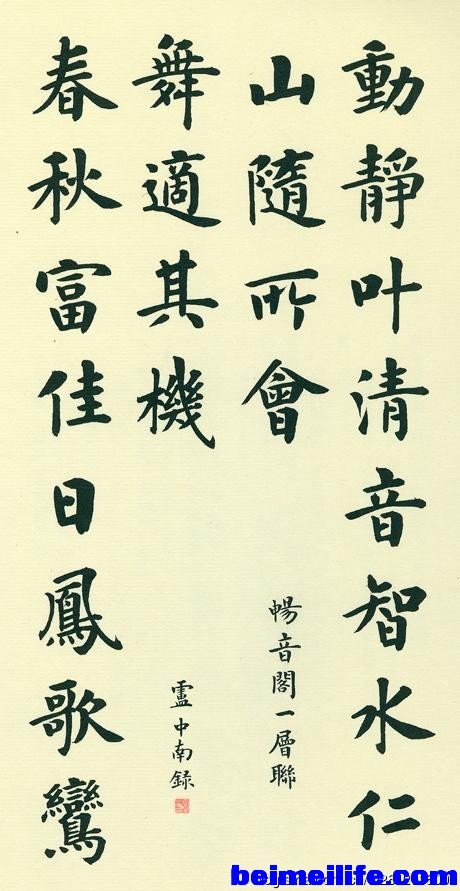 動靜叶清音智水仁
山隨所會
暢音閣一層聯
春秋富佳日鳳歌鸞
舞適其機
盧中南録
beimeilife.com